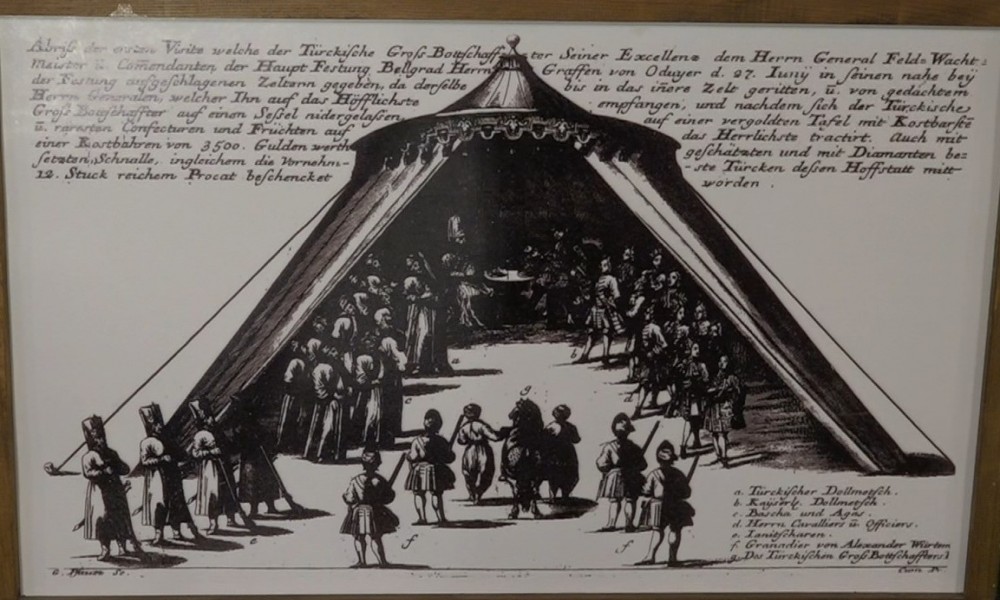 Abriss der ersten Visite welche der Türckische Gross Bottschaffter Seiner Excellenz dem Herrn General Feld=Wacht=
Meister ü. Comendanten der Haupt Festung Bellgrad Herrn Graffen von Oduyer d. 27. Iunÿ in seinen nahe beÿ
der Festung aufgeschlagenen Zeltern gegeben, da derselbe bis in das inere Zelt geritten, ü. von gedachtem
Herrn Generalen, welcher Ihn auf das Höfflichste empfangen, und nachdem sich der Türckische
Gross Bottschaffter auf einen Sessel nidergelassen, auf einer vergoldten Tafel mit Kostbarste
ü. raresten Confecturen und Früchten auf das Herrlichste tractirt. Auch mit
einer Kostbahren von 3500. Gulden werth geschätzten und mit Diamanten be=
setzten Schnalle, ingleichem die Vornehm=ste Türcken dessen Hoffstatt mitt
12. Stuck reichem Procat beschencket worden.
b
c
d
g
e
f
f
a. Türckischer Dollmetsch.
b. Kaÿserl. Dollmetsch.
c. Bascha und Agas.
d. Herrn Cavalliers ü Officiers.
e. Ianitscharen.
f. Granadier von Alexander Würtem
g. Des Türckischen Gross Bottschaffters